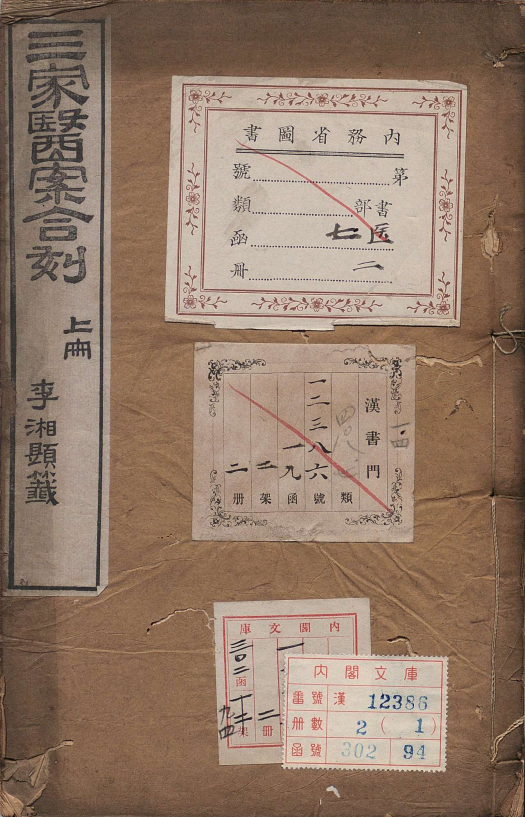 三家醫案合刻
上冊
李湘顯籤
內務省圖書
第 號
書部 類
医 七 函
二 冊
漢書門
類
一二三八六 號
一九 函
二 架
二 冊
內閣文庫
三〇二函
二冊
內閣文庫
番號 漢 12386
册數 2(1)
函號 302 94